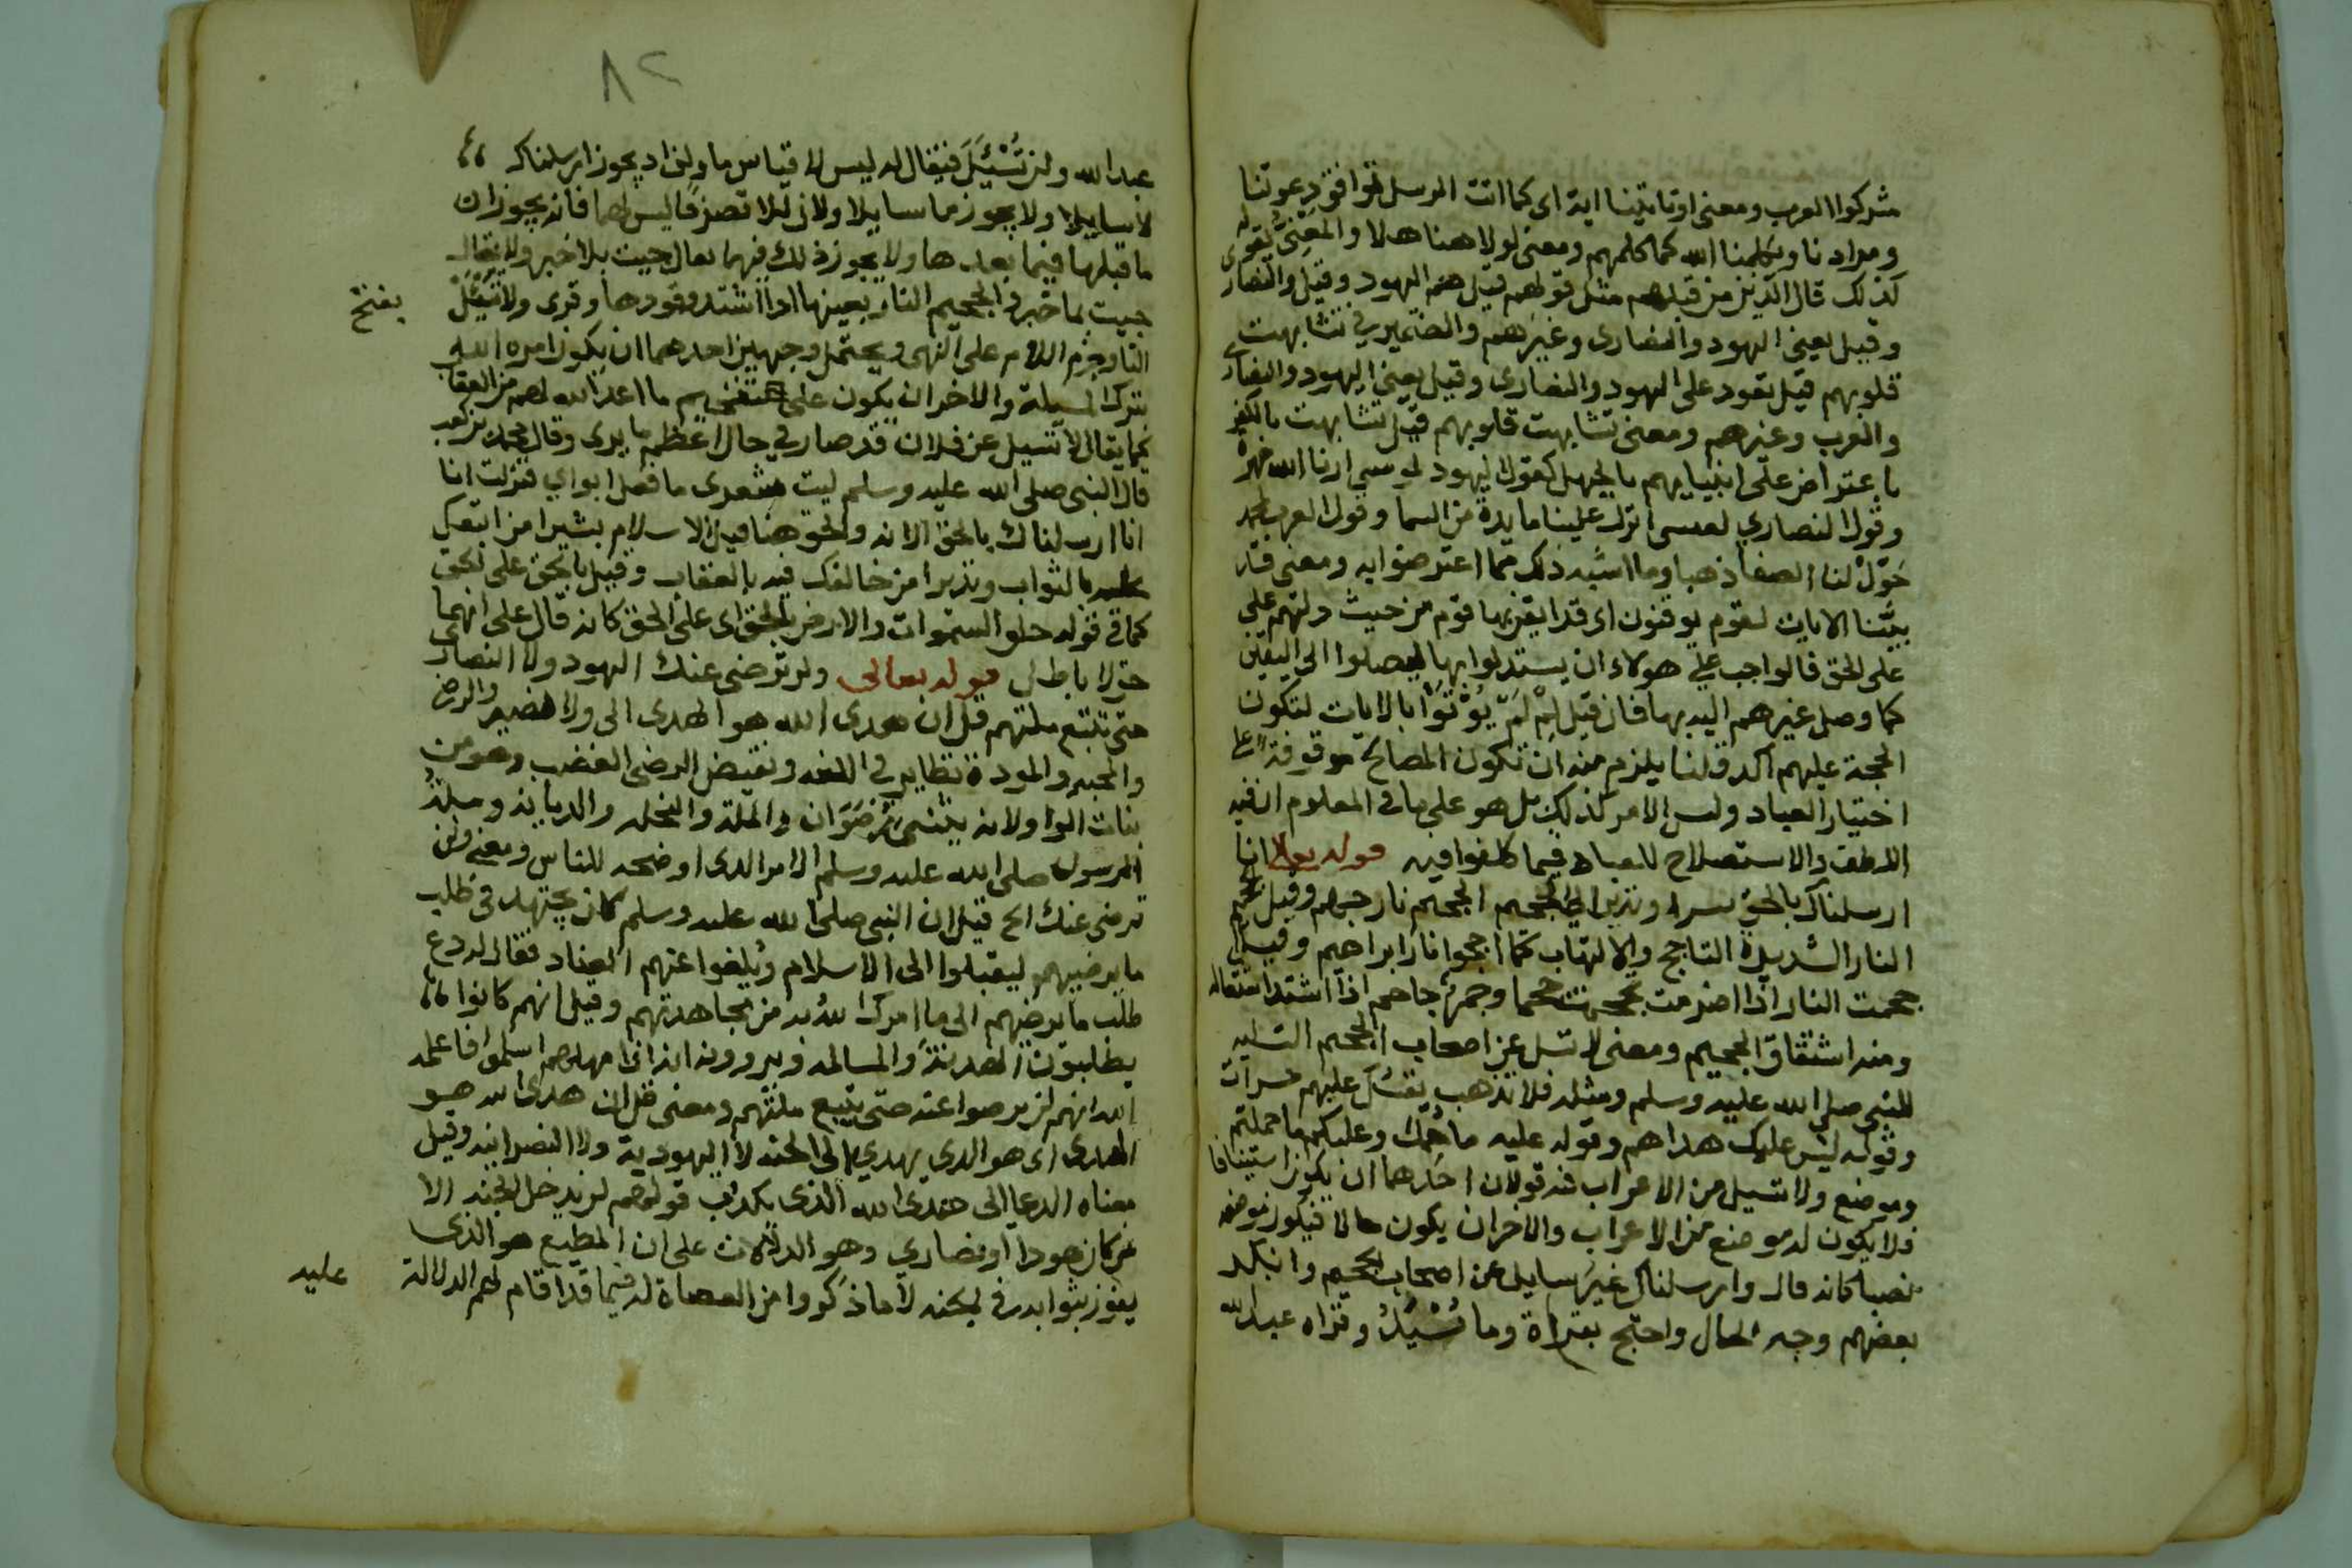 مشركوا العرب ومعنى او تاتينا اية اى كما اتت الرسل توافق دعوتنا
ومرادنا ويكلمنا الله كما كلمهم ومعنى لولا هنا هلا والمعنى بقوله
كذلك قال الذين من قبلهم مثل قولهم قيل هم اليهود وقيل والنصار
وقيل يعنى اليهود والنصارى وغيرهم والضمير في تشابهت
قلوبهم قيل تعود على اليهود والنصارى وقيل يعنى اليهود والنصارى
والعرب وغيرهم ومعنى تشابهت قلوبهم قيل تشابهت بالكفر
باعتراض على انبيايهم بالجهل كقول اليهود لموسى ارنا الله جهرة
وقول النصاري لعيسى انزل علينا مايدة من السما وقول العرب لمحمد
حَوّل لنا الصفا ذهبا وما اشبه ذلك مما اعترضوا به ومعنى قد
بيَّنا الايات لقوم يوقنون اى قد ايقن بها قوم من حيث دلتهم على
على الحق فالواجب على هولاء ان يستدلوا بها ليصلوا الى اليقين
كما وصل غيرهم اليه بها فان قيل لِمْ لَمّ يُوْتَوْا بالايات لتكون
الحجة عليهم اكد قلنا يلزم منه ان تكون المصالح موقوفة على
اختيار العباد وليس الامر كذلك بل هو على ما فى المعلوم ان فيه
اللطف والاستصلاح للعباد فيما كلفوا فيه قوله تعالى انا
ارسلناك بالحق بشيرا ونذيرا الى الجحيم الجحيم نار جهنم وقيل الجحيم
النار الشديدة التاجج والالتهاب كما اججوا نار ابراهيم وقيل
جحمت النار اذا اضرمت جحما وجمرٌ جاحم اذا اشتد اشتعاله
ومنه اشتقاق الجحيم ومعنى لا تسل عن اصحاب الجحيم التسلية
للنبى صلى الله عليه وسلم ومثله فلا تذهب نفسك عليهم حسرات
وقوله ليس عليك هداهم وقوله عليه ما حُمّل وعليكم ما حملتم
وموضع ولا تسيل من الاعراب فيه قولان احدهما ان يكون استينافا
فلا يكون له موضع من الاعراب والاخر ان يكون حالا فيكون موضعه
نصبا كانه قال وارسلناك غير سايل عن اصحاب الجحيم وانكر
بعضهم وجه الحال واحتج بقراة وما تُسْيَلُ وقراه عبد الله
٨٢
عبد الله ولن تُسْيَلَ فيقال له ليس لا قياس ما ولن اذ يجوز ارسلناك
لا سايلا ولا يجوز ما سايلا ولان للا تصرفا ليس لهما فانه يجوز ان
ما قبلها فيما بعدها ولا يجوز ذلك فيهما يقال جيت بلا خبر ولا يقال
جيت بما خبر والجحيم النار بعينها اذا اشتد وقودها وقرى ولا تَسْيَلْ بفتح
التا وجزم اللام على النهى ويحتمل وجهين احدهما ان يكون امره الله
بترك المسيلة والاخر ان يكون على تفخيم ما اعد الله لهم من العقاب
كما يقال لا تسيل عن فلان قد صار في حال اعظم ما يرى وقال محمد بن كعب
قال النبى صلى الله عليه وسلم ليت شعرى ما فعل ابواي فنزلت انا
انا ارسلناك بالحق الاية والحق هنا قيل الاسلام بشيرا من اتبعك
عليه بالثواب ونذيرا من خالفك فيه بالعقاب وقيل بالحق على الحق
كما فى قوله خلق السموات والارض بالحق اى على الحق كانه قال على انهما
حق لا باطل قوله تعالى ولن ترضى عنك اليهود ولا النصار
حتى تتبع ملتهم قل ان هدى الله هو الهدى الى ولا نصير والرضى
والمحبة والمودة نظاير في اللغة ونقيض الرضى الغضب وهو من
بنات الواو لانه يثنى رضَوَان والملة والنحلة والديانة وملة
الرسول صلى الله عليه وسلم الامر الذى اوضحه للناس ومعنى ولن
ترضى عنك الخ قيل ان النبى صلى الله عليه وسلم كان يجتهد فى طلب
ما يرضيهم ليقبلوا الى الاسلام ويُلغوا عنهم العناد فقال له دع
طلب ما يرضيهم الى ما امرك الله به من مجاهدتهم وقيل انهم كانوا
يطلبون الهدنة والمسالمة ويرونه انه اذا مهلهم اسلموا فاعلمه
الله انهم لن يرضوا عنه حتى يتبع ملتهم ومعنى قل ان هدى الله هو
الهدى اى هو الذي يهدي الى الجنة لا اليهودية ولا النصرانية وقيل
معناه الدعا الى هدى الله الذى يكذب قولهم لن يدخل الجنة الا
من كان هودا او نصارى وهو الدلالات على ان المطيع هو الذى
يفوز بثوابه فى الجنة لا ما ذكروا من العصاة له فيما قد اقام لهم الدلالة عليه